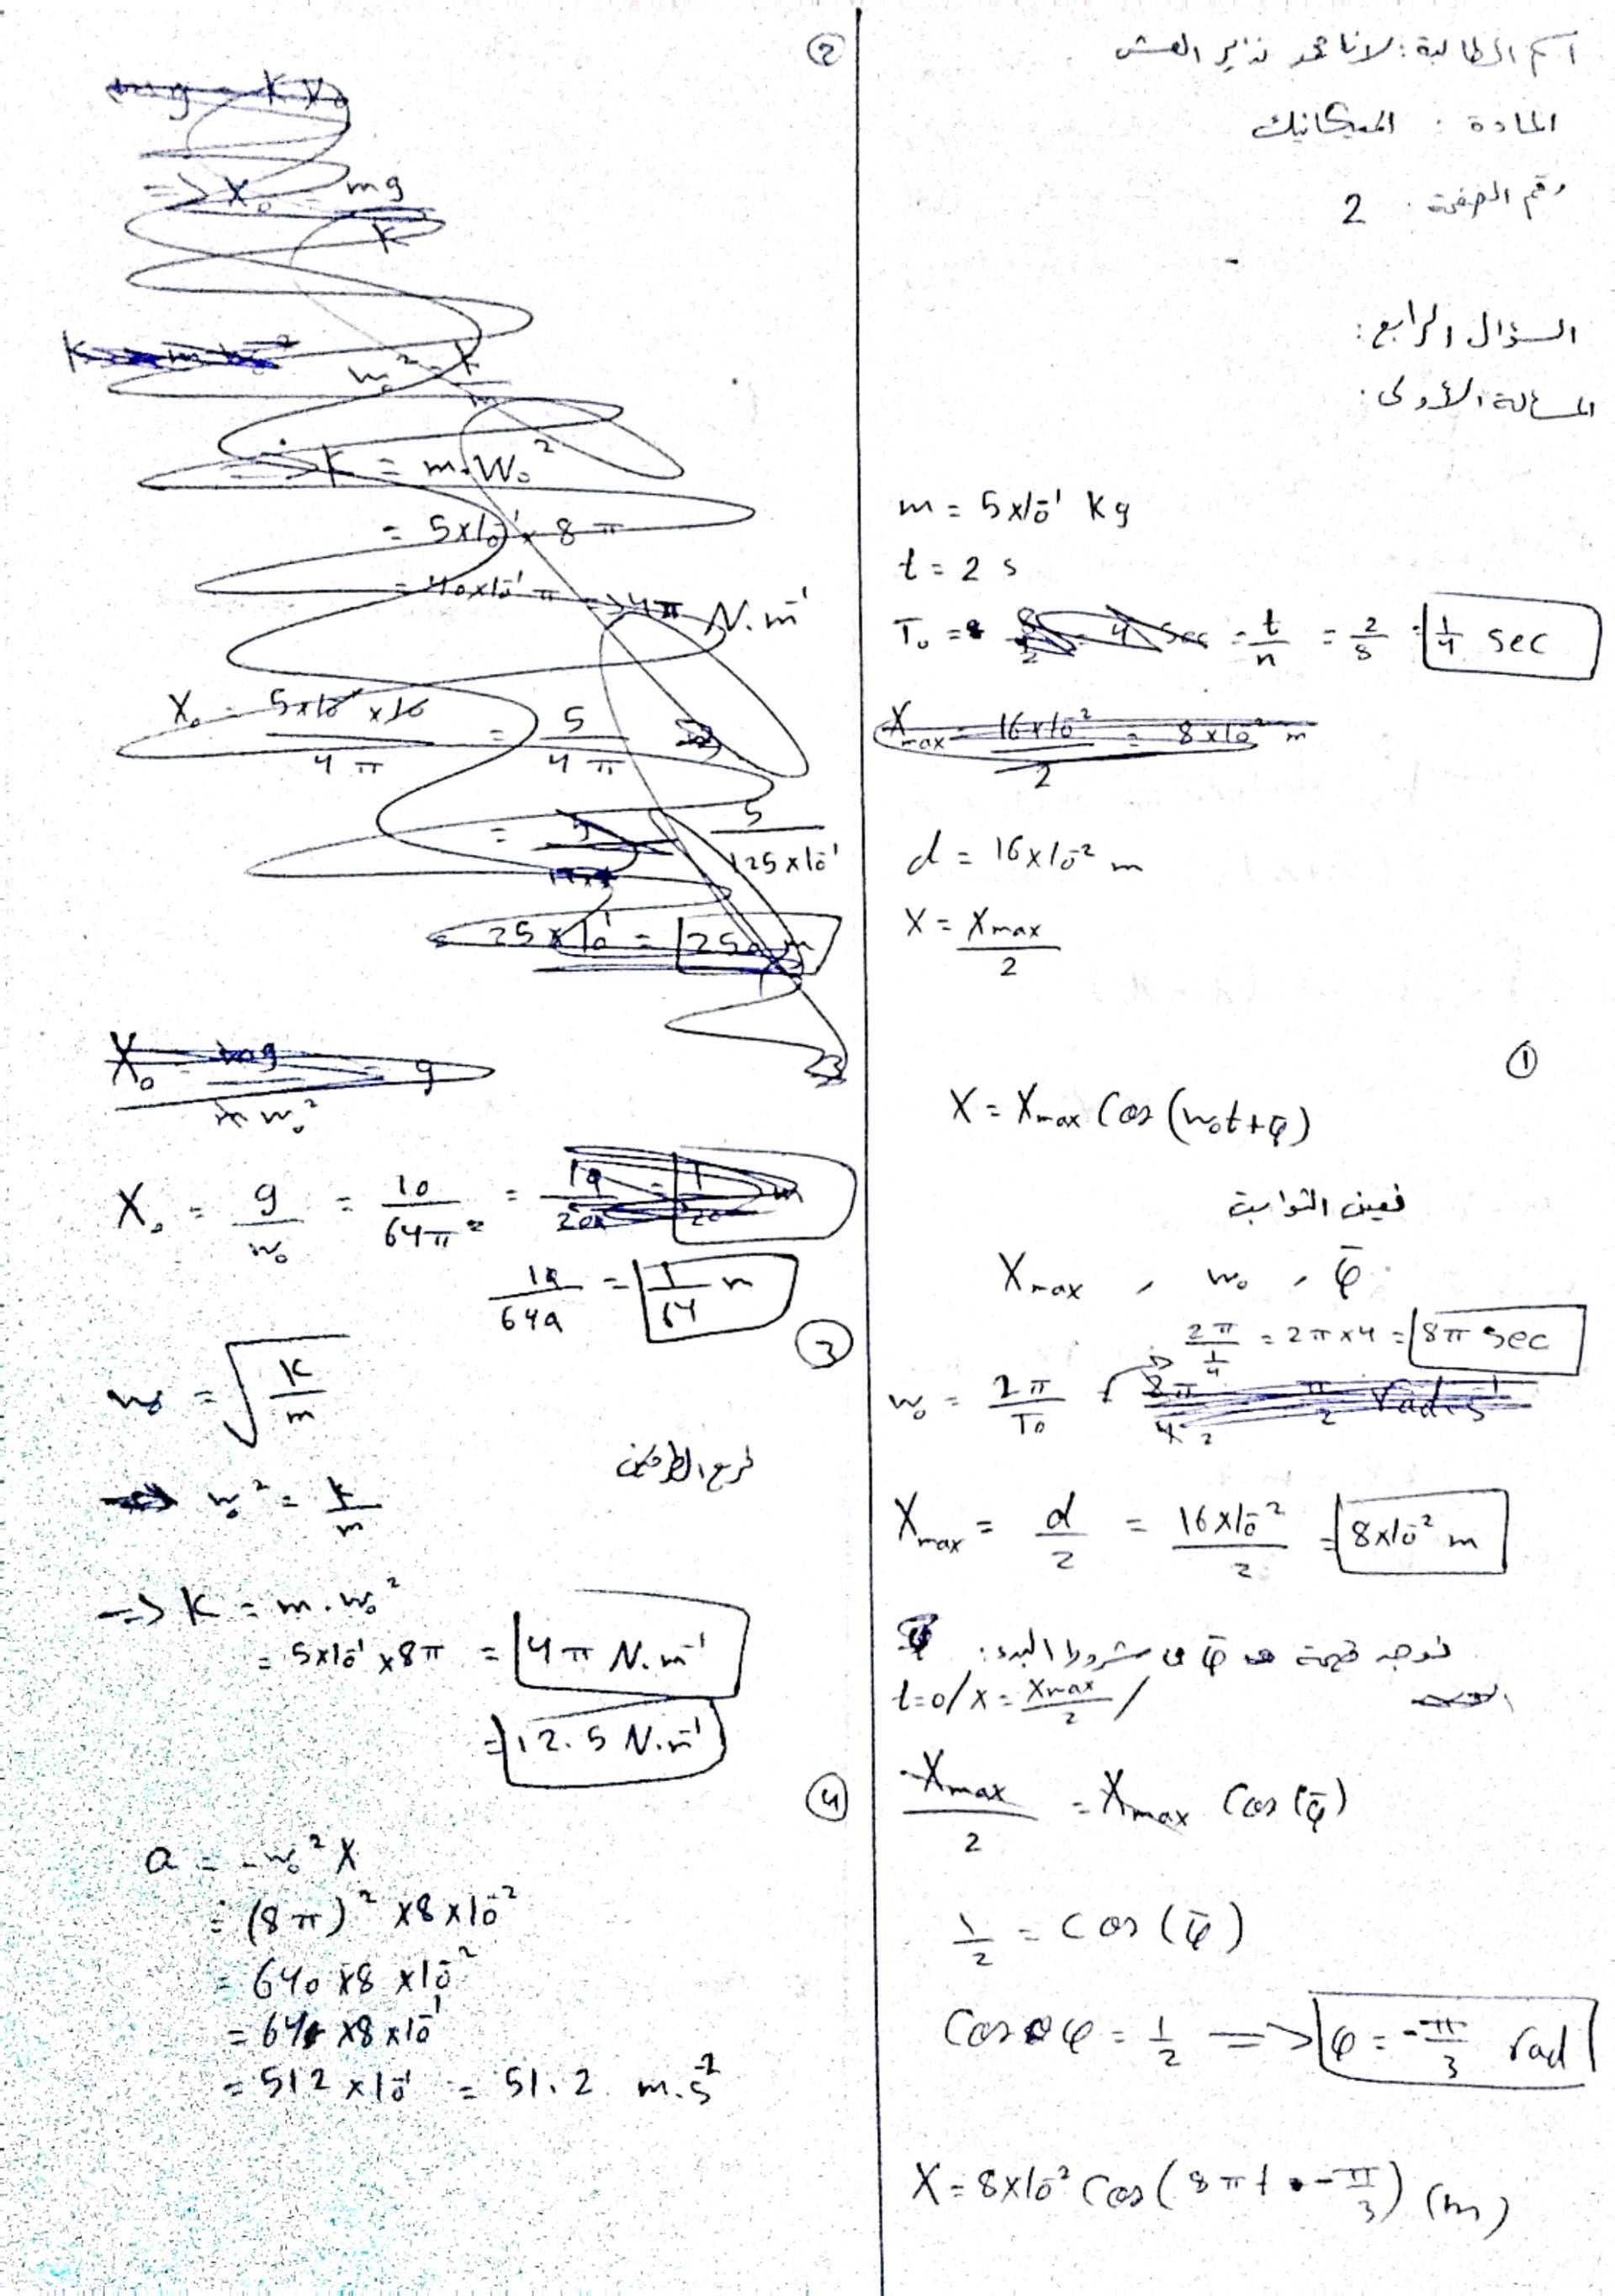 اسم الطالبة: لانا محمد نذير العش
المادة: الميكانيك
رقم الصفحة: 2
السؤال الرابع:
المسألة الأولى:
m = 5×10⁻¹ Kg
t = 2 s
T₀ = t/n = 2/8 = 1/4 sec
d = 16×10⁻² m
X = Xmax/2
①
X = Xmax Cos(w₀t+φ̄)
نعين الثوابت
Xmax , w₀ , φ̄
2π/(1/4) = 2π×4 = 8π sec
w₀ = 2π/T₀
Xmax = d/2 = 16×10⁻²/2 = 8×10⁻² m
نوجد قيمة φ̄ من شروط البدء:
t=0/x = Xmax/2 /
Xmax/2 = Xmax Cos(φ̄)
1/2 = Cos(φ̄)
Cos φ = 1/2 => φ = -π/3 rad
X = 8×10⁻² Cos(8πt - π/3) (m)
②
mg = KX₀
=> X₀ = mg/K
w₀² = k/m
=> k = m.w₀²
= 5×10⁻¹ × 8π
= 40×10⁻¹π => 4π N.m⁻¹
X₀ = 5×10⁻¹×10/4π = 5/4π
= 5/125×10⁻¹
= 25×10¹ = 250 m
X₀ = mg/mw₀² = g
X₀ = g/w₀ = 10/64π² =
10/640 = 1/64 m
③
w₀ = √(K/m)
نربع الطرفين
w₀² = k/m
=> K = m.w₀²
= 5×10⁻¹×8π = 4π N.m⁻¹
= 12.5 N.m⁻¹
④
a = -w₀²X
= (8π)² ×8×10⁻²
= 640×8×10⁻²
= 64×8×10⁻¹
= 512×10⁻¹ = 51.2 m.s⁻²